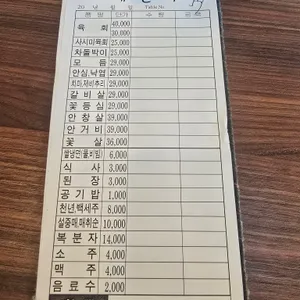 20 년 월 일 Table.No
품 명 단가 수 량 금 액
육 회 40,000
30,000
사시미육회 25,000
차돌박이 25,000
모 듬 29,000
안심,낙엽 29,000
29,000
갈 비 살 29,000
꽃 등 심 29,000
안 창 살 39,000
안 거 비 39,000
꽃 살 36,000
쌀냉면(물,비빔) 6,000
식 사 3,000
된 장 3,000
공 기 밥 1,000
천년,백세주 8,000
설중매,매취순 10,000
복 분 자 14,000
소 주 4,000
맥 주 4,000
음 료 수 2,000